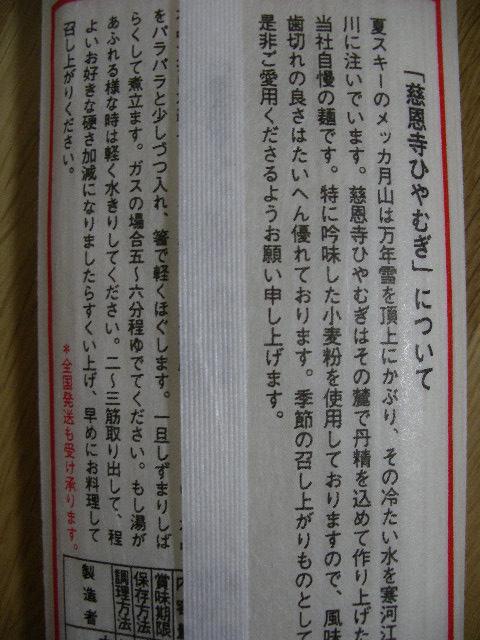 「慈恩寺ひやむぎ」について
夏スキーのメッカ月山は万年雪を頂上にかぶり、その冷たい水を寒河江
川に注いでいます。慈恩寺ひやむぎはその麓で丹精を込めて作り上げた
当社自慢の麺です。特に吟味した小麦粉を使用しておりますので、風味
歯切れの良さはたいへん優れております。季節の召し上がりものとして
是非ご愛用くださるようお願い申し上げます。
をパラパラと少しづつ入れ、箸で軽くほぐします。一旦しずまりしば
らくして煮立ます。ガスの場合五〜六分程ゆでてください。もし湯が
あふれる様な時は軽く水きりしてください。二〜三筋取り出して、程
よいお好きな硬さ加減になりましたらすくい上げ、早めにお料理して
召し上がりください。
*全国発送も受け承ります。
賞味期限
保存方法
調理方法
製造者